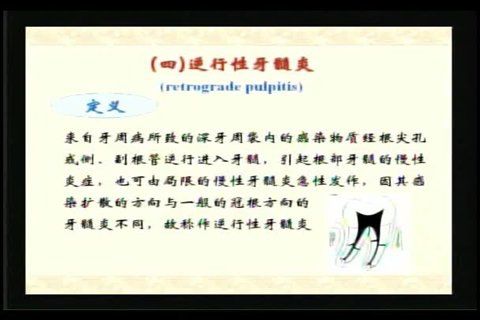 (四)逆行性牙髓炎
(retrograde pulpitis)
定义
来自牙周病所致的深牙周袋内的感染物质经根尖孔
或侧、副根管逆行进入牙髓，引起根部牙髓的慢性
炎症，也可由局限的慢性牙髓炎急性发作，因其感
染扩散的方向与一般的冠根方向的
牙髓炎不同，故称作逆行性牙髓炎